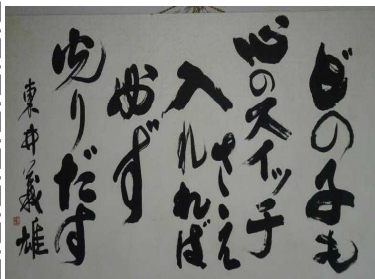 どの子も
心のスイッチ
さえ
入れれば
必ず
光りだす
東井義雄